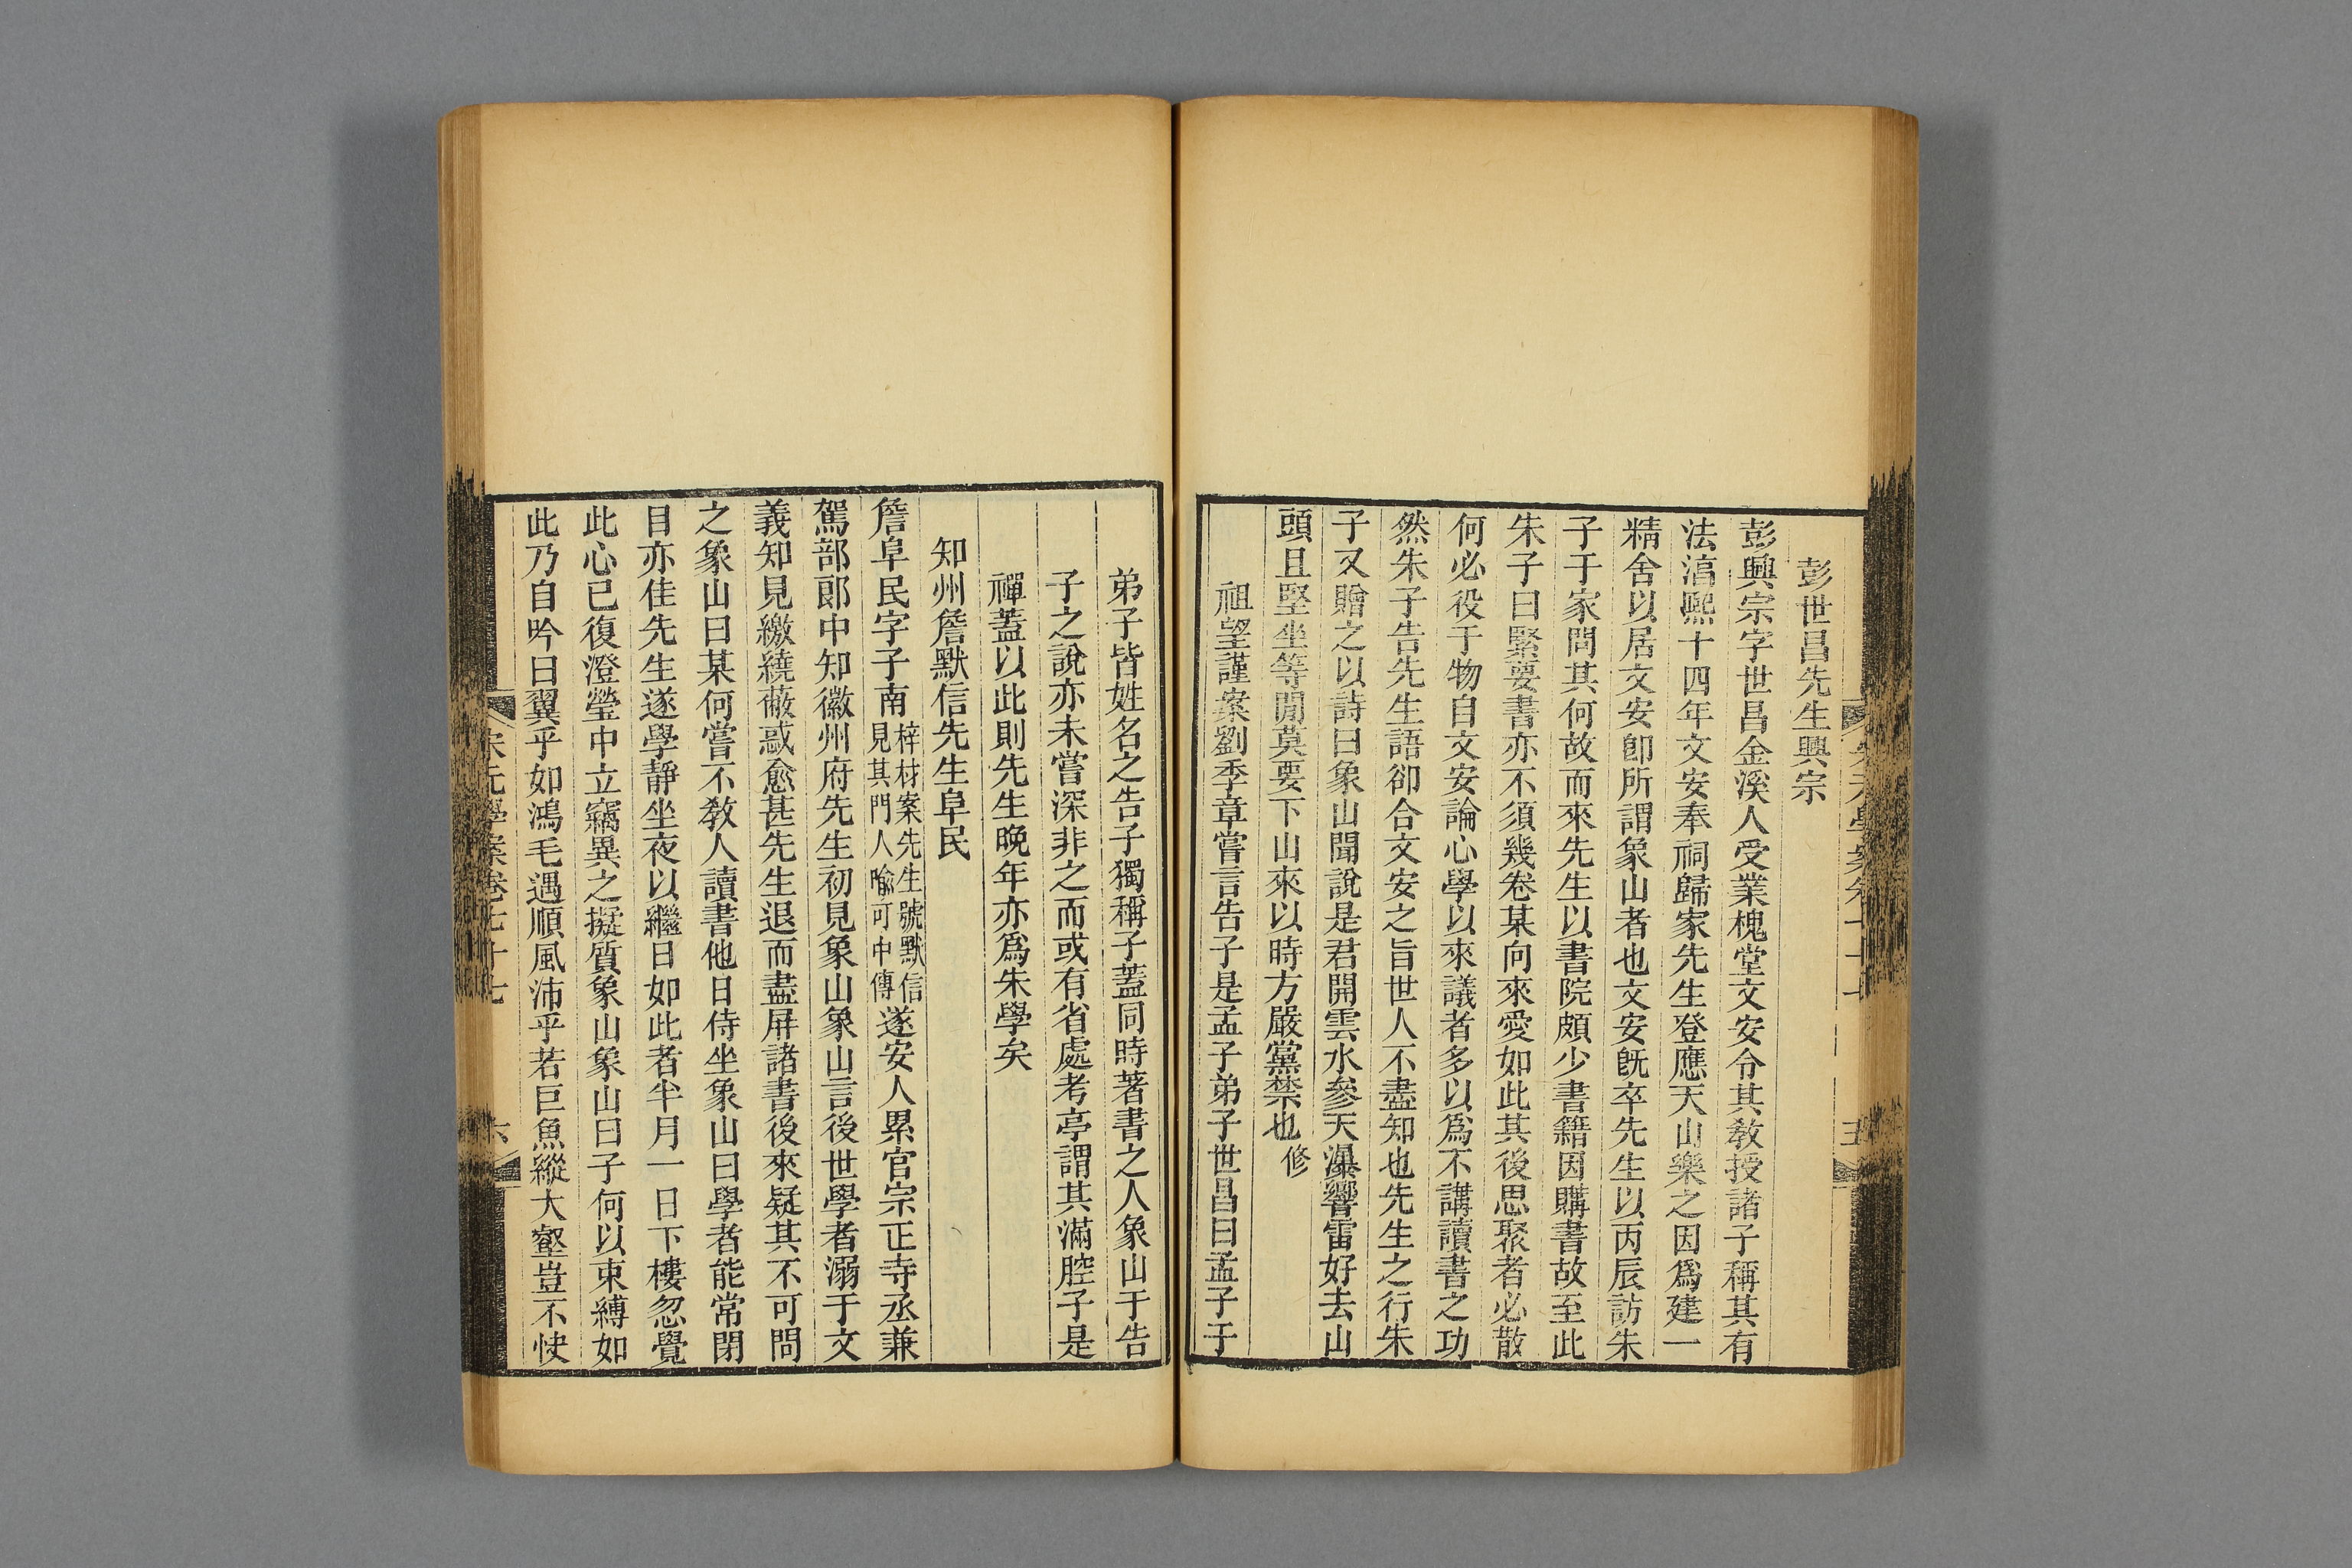 彭世昌先生興宗
彭興宗字世昌金溪人受業槐堂文安令其敎授諸子稱其有
法湻熙十四年文安奉祠歸家先生登應天山樂之因爲建一
精舍以居文安卽所謂象山者也文安旣卒先生以丙辰訪朱
子于家問其何故而來先生以書院頗少書籍因購書故至此
朱子曰緊要書亦不須幾卷某向來愛如此其後思聚者必散
何必役于物自文安論心學以來議者多以爲不講讀書之功
然朱子告先生語卻合文安之旨世人不盡知也先生之行朱
子又贈之以詩曰象山聞說是君開雲水參天瀑響雷好去山
頭且堅坐等閒莫要下山來以時方嚴黨禁也修
祖望謹案劉季章嘗言告子是孟子弟子世昌曰孟子于
弟子皆姓名之告子獨稱子蓋同時著書之人象山于告
子之說亦未嘗深非之而或有省處考亭謂其滿腔子是
禪蓋以此則先生晚年亦爲朱學矣
知州詹默信先生阜民
詹阜民字子南梓材案先生號默信見其門人喻可中傳遂安人累官宗正寺丞兼
駕部郎中知徽州府先生初見象山象山言後世學者溺于文
義知見繳繞蔽惑愈甚先生退而盡屛諸書後來疑其不可問
之象山曰某何嘗不敎人讀書他日侍坐象山曰學者能常閉
目亦佳先生遂學靜坐夜以繼日如此者半月一日下樓忽覺
此心已復澄瑩中立竊異之擬質象山象山曰子何以束縛如
此乃自吟曰翼乎如鴻毛遇順風沛乎若巨魚縱大壑豈不快
宋元學案卷七十七
六